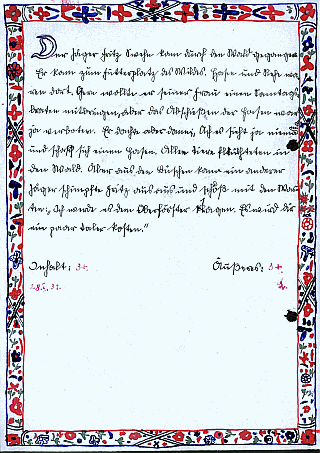 Der Jäger Fritz Srehn kam durch den Wald gegangen
Er kam zum Futterplatz des Wildes. Hasen und Rehe wa
ren dort. Gern wollte er seiner Frau einen Sonntags
braten mitbringen, aber das Abschießen der Hasen war
ja verboten. Er dachte aber dann, Ach es sieht ja niemand
und schoß sich einen Hasen. Alle Tiere flüchteten in
den Wald. Aber aus den Büschen kam ein anderer
Jäger schimpfte Fritz aus und schloß mit den Wor
ten: "Ich werde es dem Oberförster sagen. Es wird dir
ein paar Taler kosten."
Inhalt: 3+ Äußeres: 3+